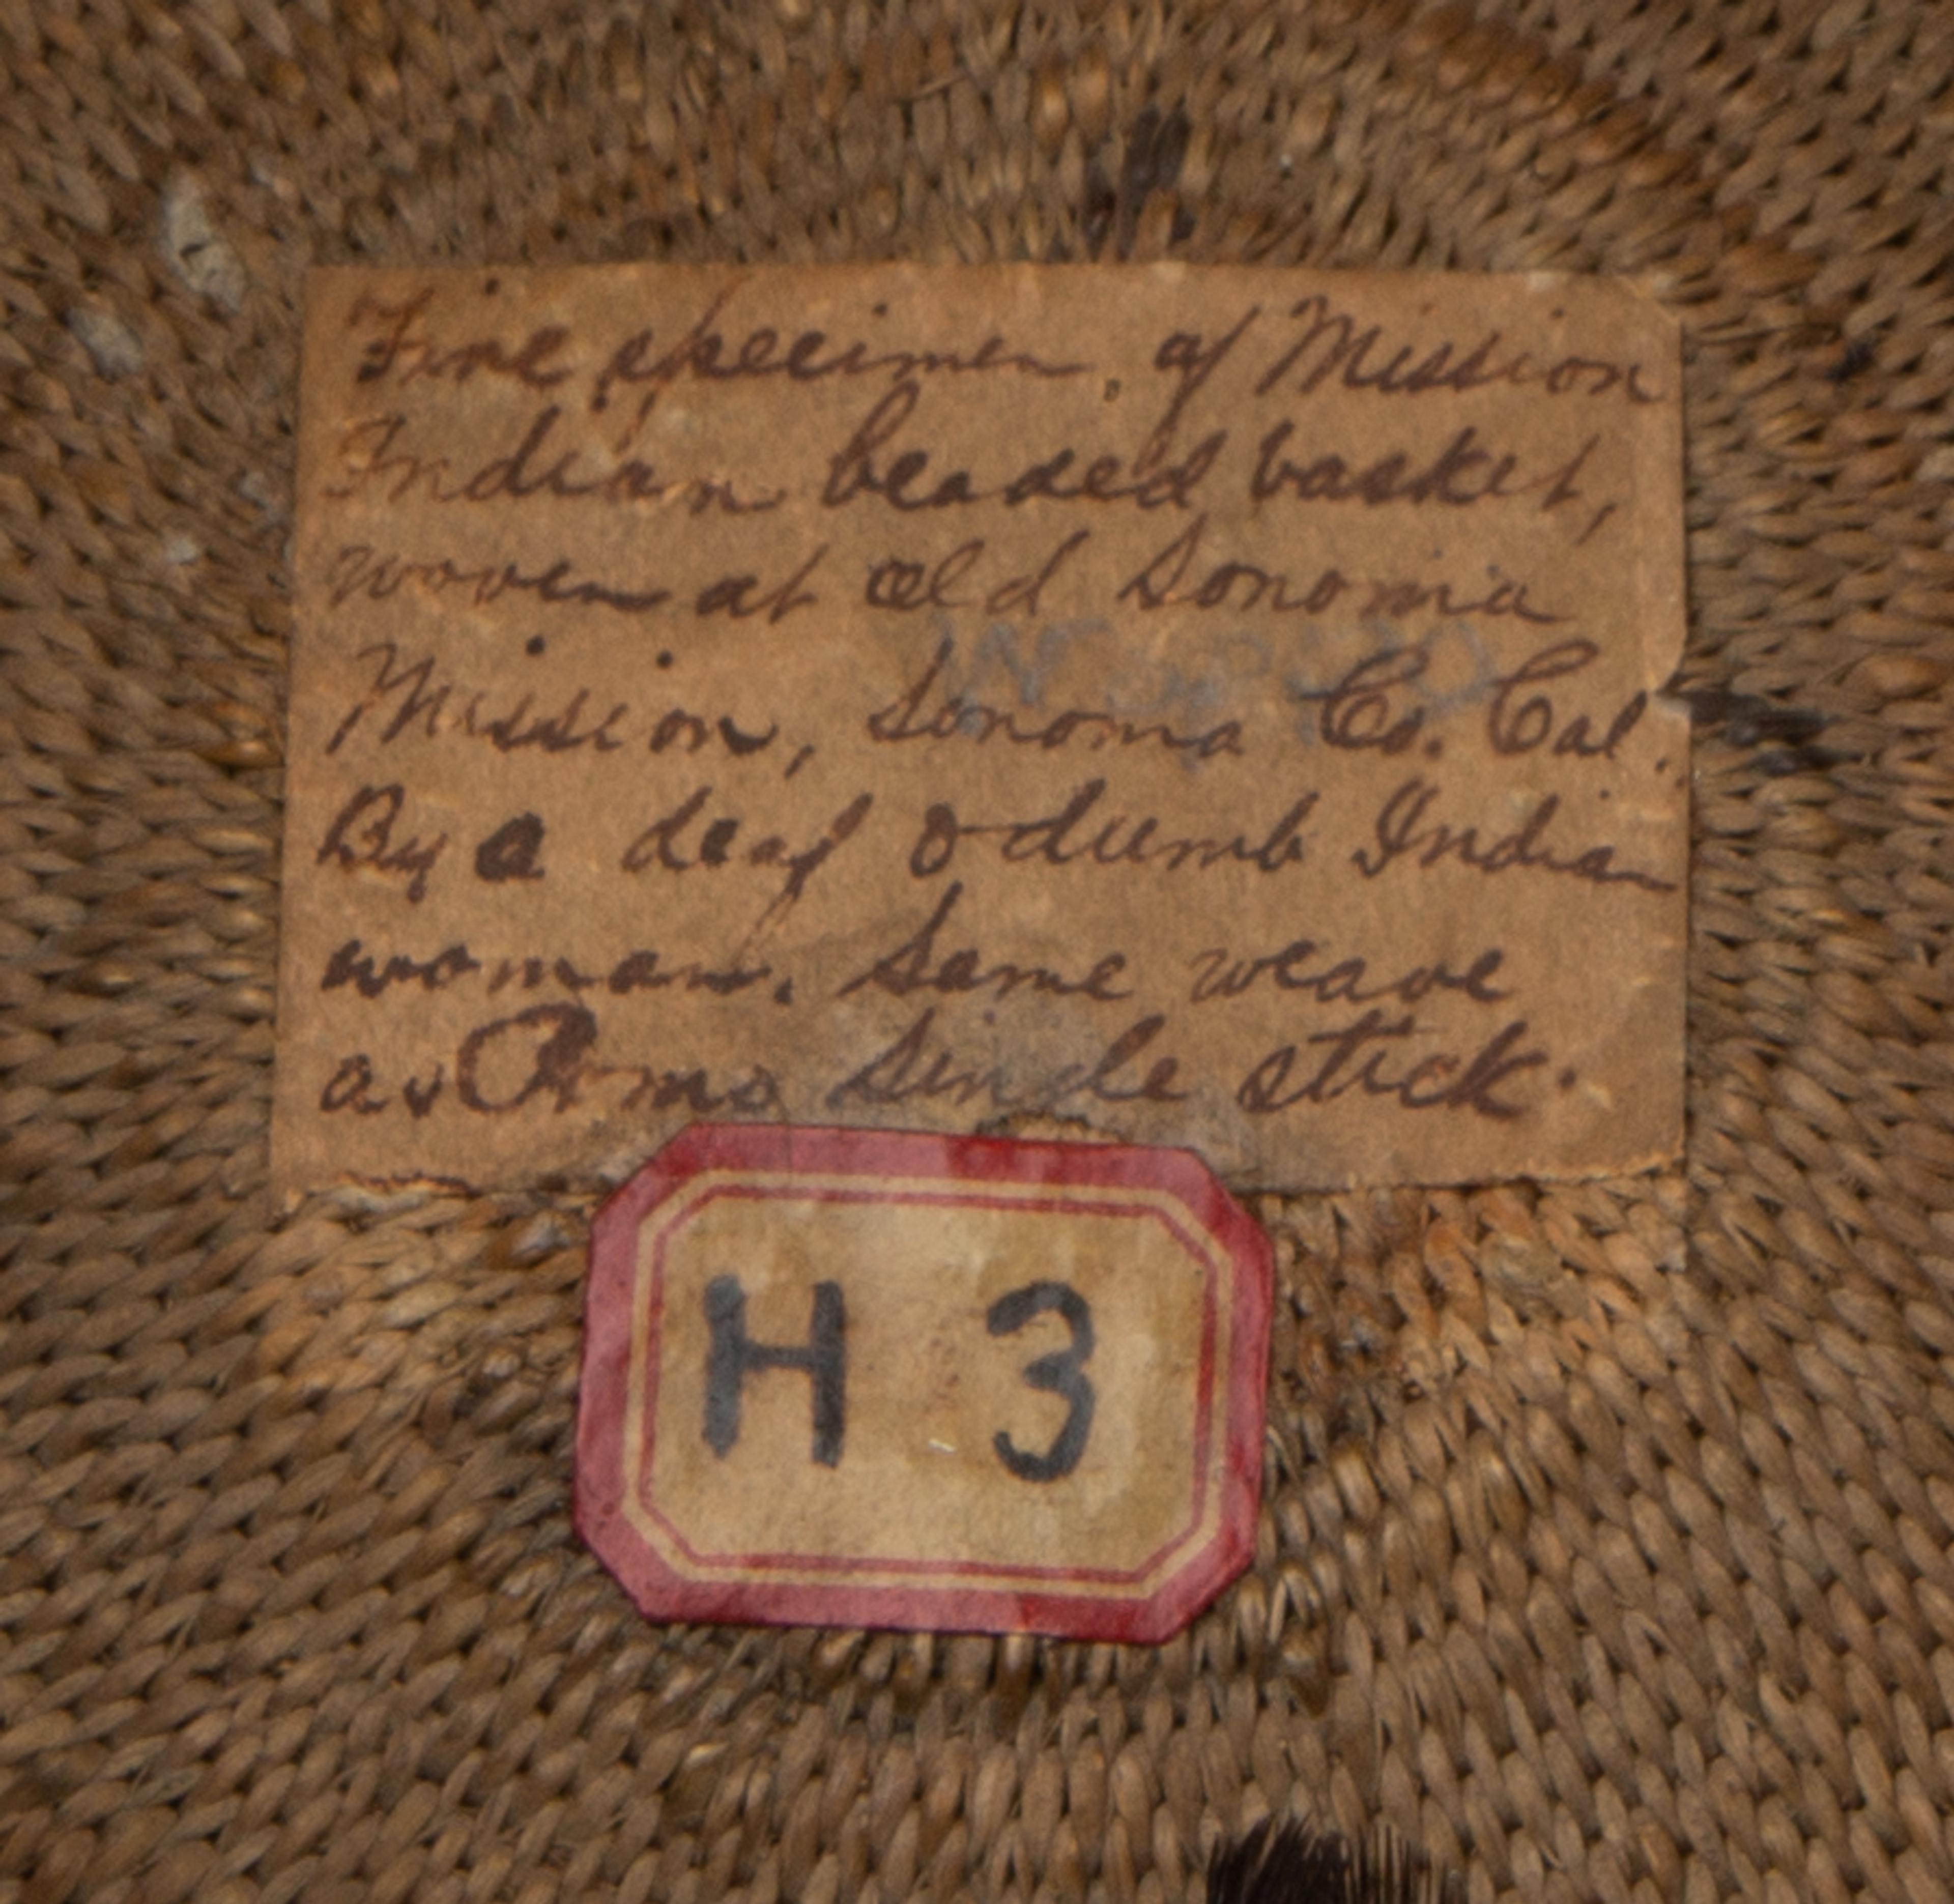 Fine specimen of Mission
Indian beaded basket,
woven at old Sonoma
Mission, Sonoma Co. Cal.
By a deaf & dumb Indian
woman. Same weave
as Pomo single stick.
H 3